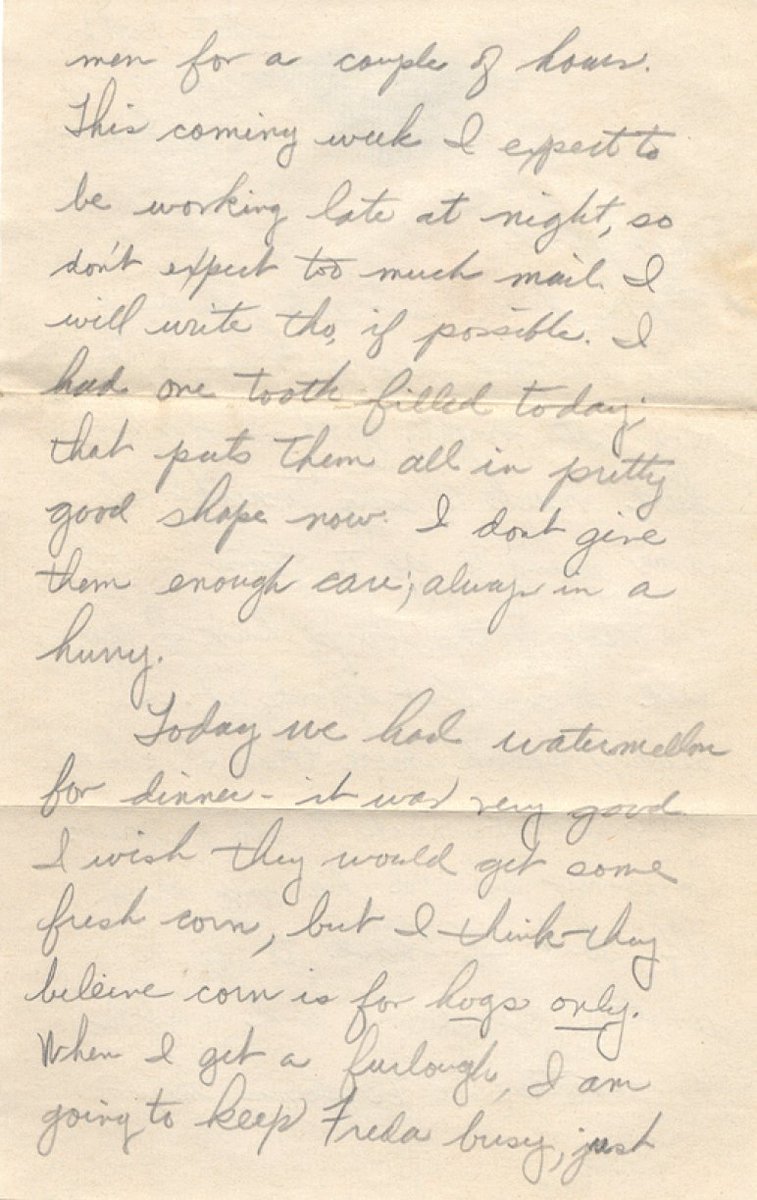 men for a couple of hours.
This coming week I expect to
be working late at night, so
don't expect too much mail. I
will write tho, if possible. I
had one tooth filled today;
that puts them all in pretty
good shape now. I dont give
them enough care; always in a
hurry.
Today we had watermellon
for dinner - it was very good
I wish they would get some
fresh corn, but I think they
beleive corn is for hogs only.
When I get a furlough, I am
going to keep Freda busy, just